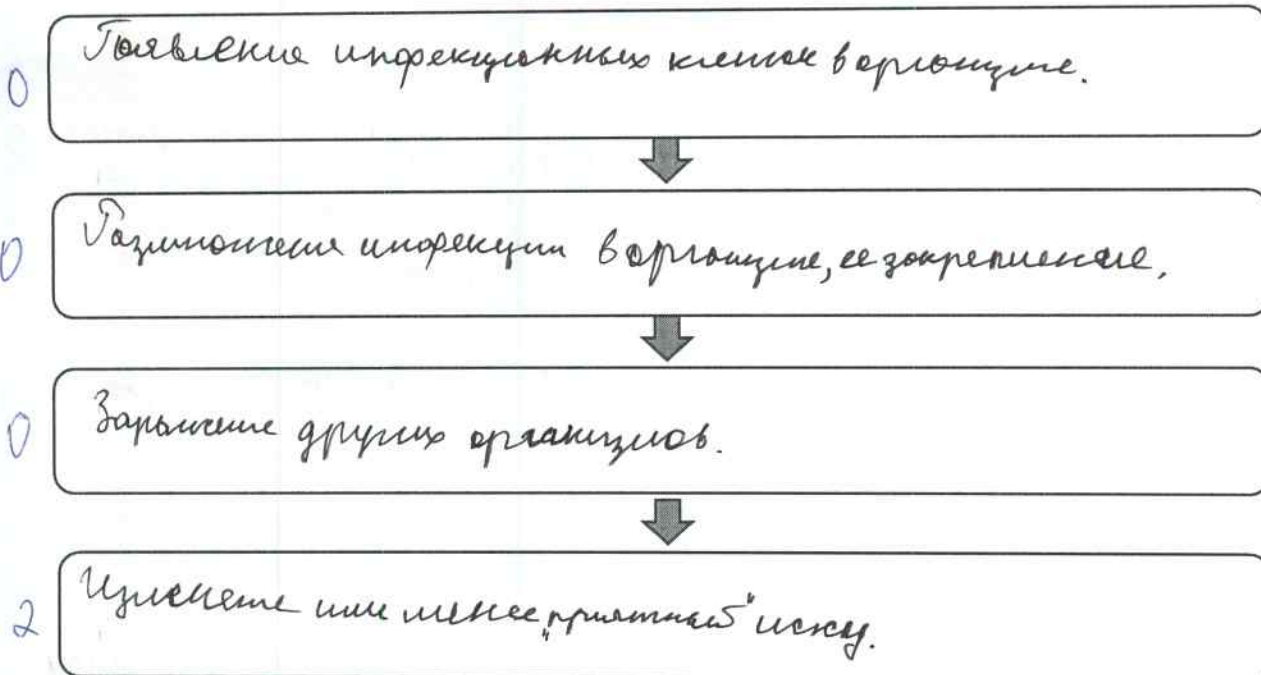 0 Появление инфекционных клеток в организме.
0 Размножение инфекции в организме, ее закрепление.
0 Заражение других организмов.
2 Излечение или менее "приятный"